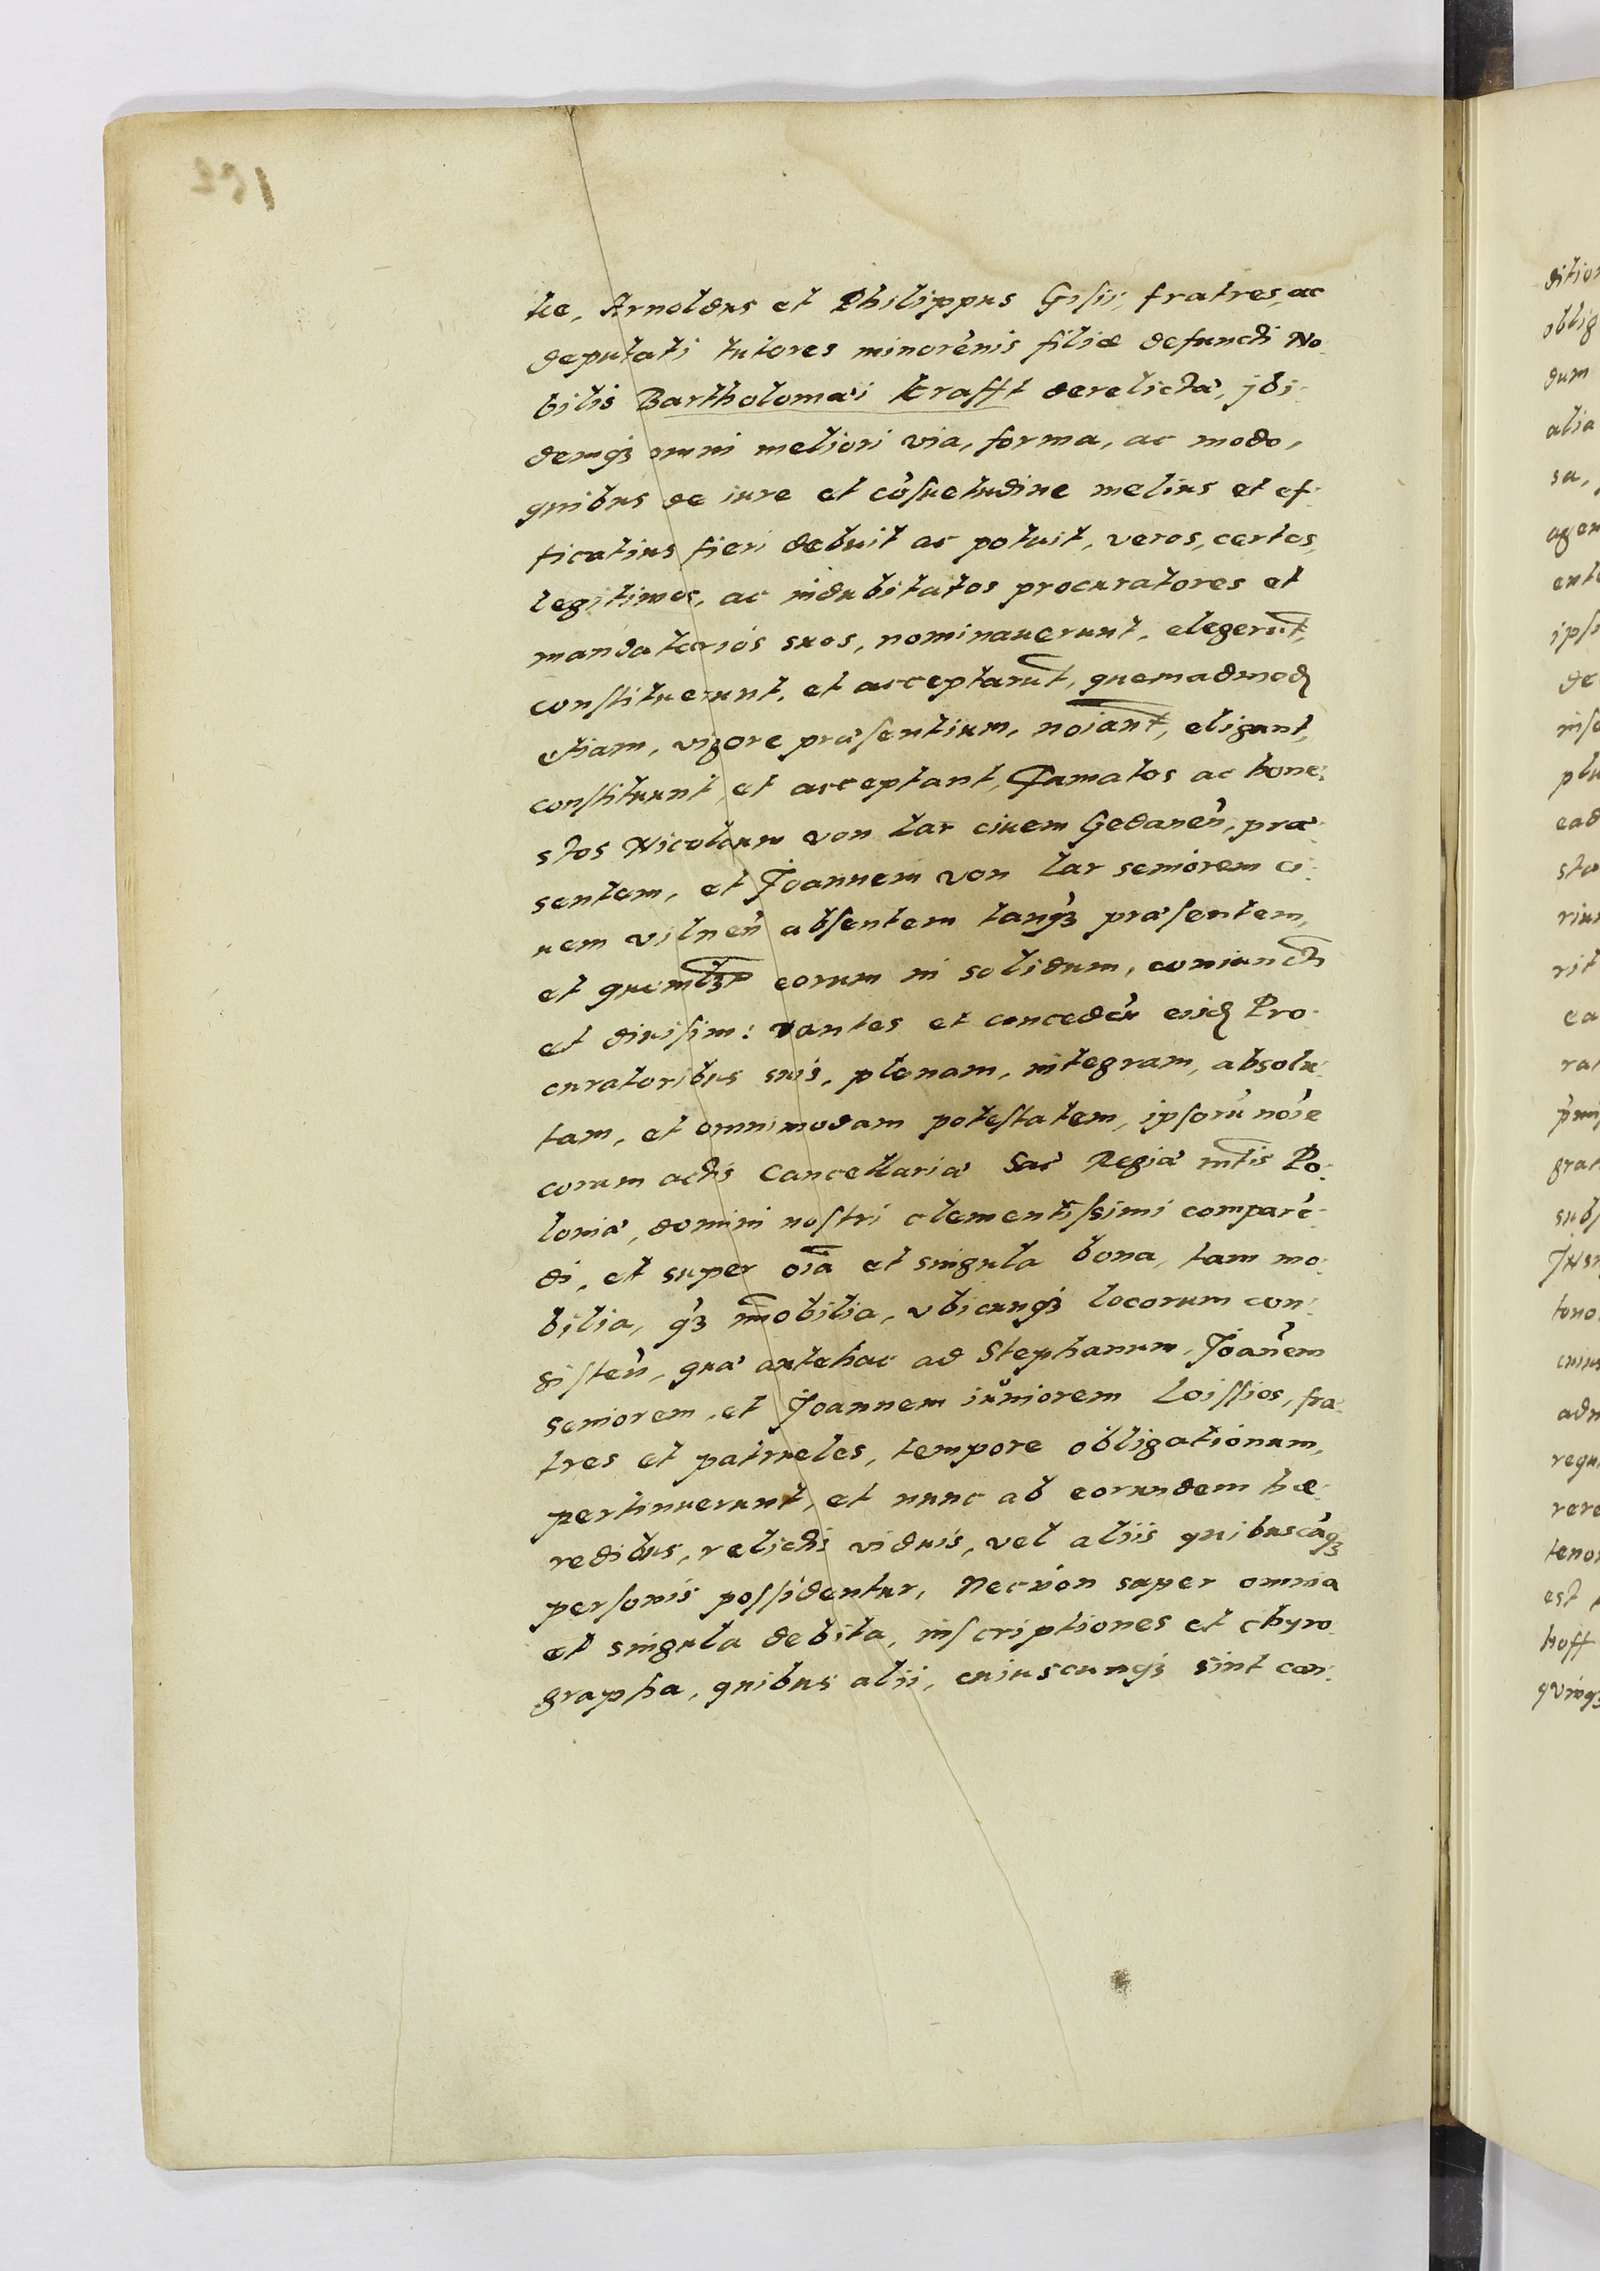 tæ, Arnoldus et Philippus Gisii, fratres, ac
deputati tutores minorēnis filiæ defuncti No:
bilis Bartholomæi Krafft derelictæ, jbi:
demq3 omni meliori via, forma, ac modo,
quibus de iure et cōsuetudine melius et ef:
ficatius fieri debuit ac potuit, veros, certos,
legitimos, ac indubitatos procuratores et
mandatarios suos, nominauerunt, elegerūt,
constituerunt, et acceptarūt, quemadmodū
etiam, vigore præsentium, noīant, eligunt,
constituunt, et acceptant, Famatos ac hone:
stos Nicolaum von Lar ciuem Gedaneñ, præ:
sentem, et Joannem von Lar seniorem ci:
uem Vilneñ absentem tanq3 præsentem,
et quemlt3 eorum in solidum, coniunctī
et diuisim: dantes et concedēn eisd Pro:
curatoribus suis, plenam, integram, absolu:
tam, et omnimodam potestatem, ipsorū noīe
coram actis Cancellariæ Sac Regiæ mtis Po:
loniæ, domini nostri clementissimi comparē:
di, et super oīa et singula bona, tam mo:
bilia, q3 imobilia, vbicunq3 locorum con:
sisteñ, quæ antehac ad Stephanum, Joāñem
seniorem, et Joannem iuniorem Loissios, fra:
tres et patrueles, tempore obligationum,
pertinuerunt, et nunc ab eorundem hæ:
redibus, relictis viduis, vel aliis quibuscūq3
personis possidentur, Necnon super omnia
et singula debita, inscriptiones et chyro
grapha, quibus alii, cuiuscunq3 sint con: